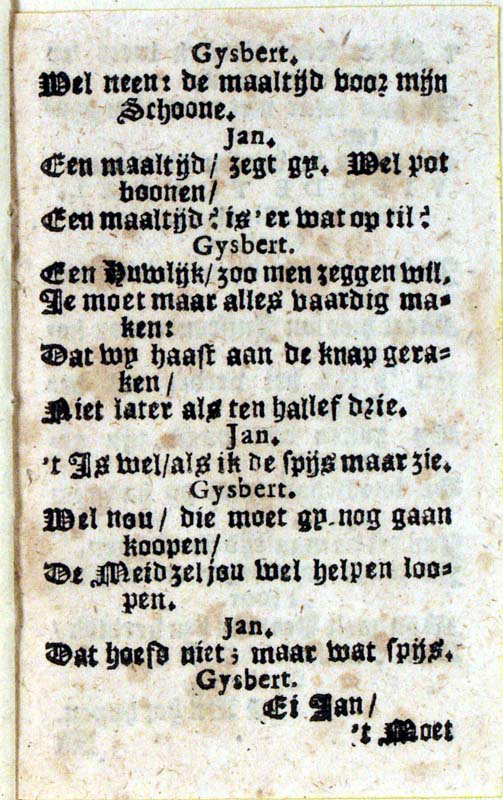 Gysbert.
Wel neen: de maaltijd voor mijn
Schoone.
Jan.
Een maaltijd/ zegt gy. Wel pot
boonen/
Een maaltijd? is'er wat op til?
Gysbert.
Een Huwlijk/ zoo men zeggen wil.
Je moet maar alles vaardig ma-
ken:
Dat wy haast aan de knap gera-
ken/
Niet later als ten hallef drie.
Jan.
't Is wel/ als ik de spijs maar zie.
Gysbert.
Wel nou/ die moet gy nog gaan
koopen/
De Meid zel jou wel helpen loo-
pen.
Jan.
Dat hoefd niet; maar wat spijs.
Gysbert.
Ei Jan/
't Moet